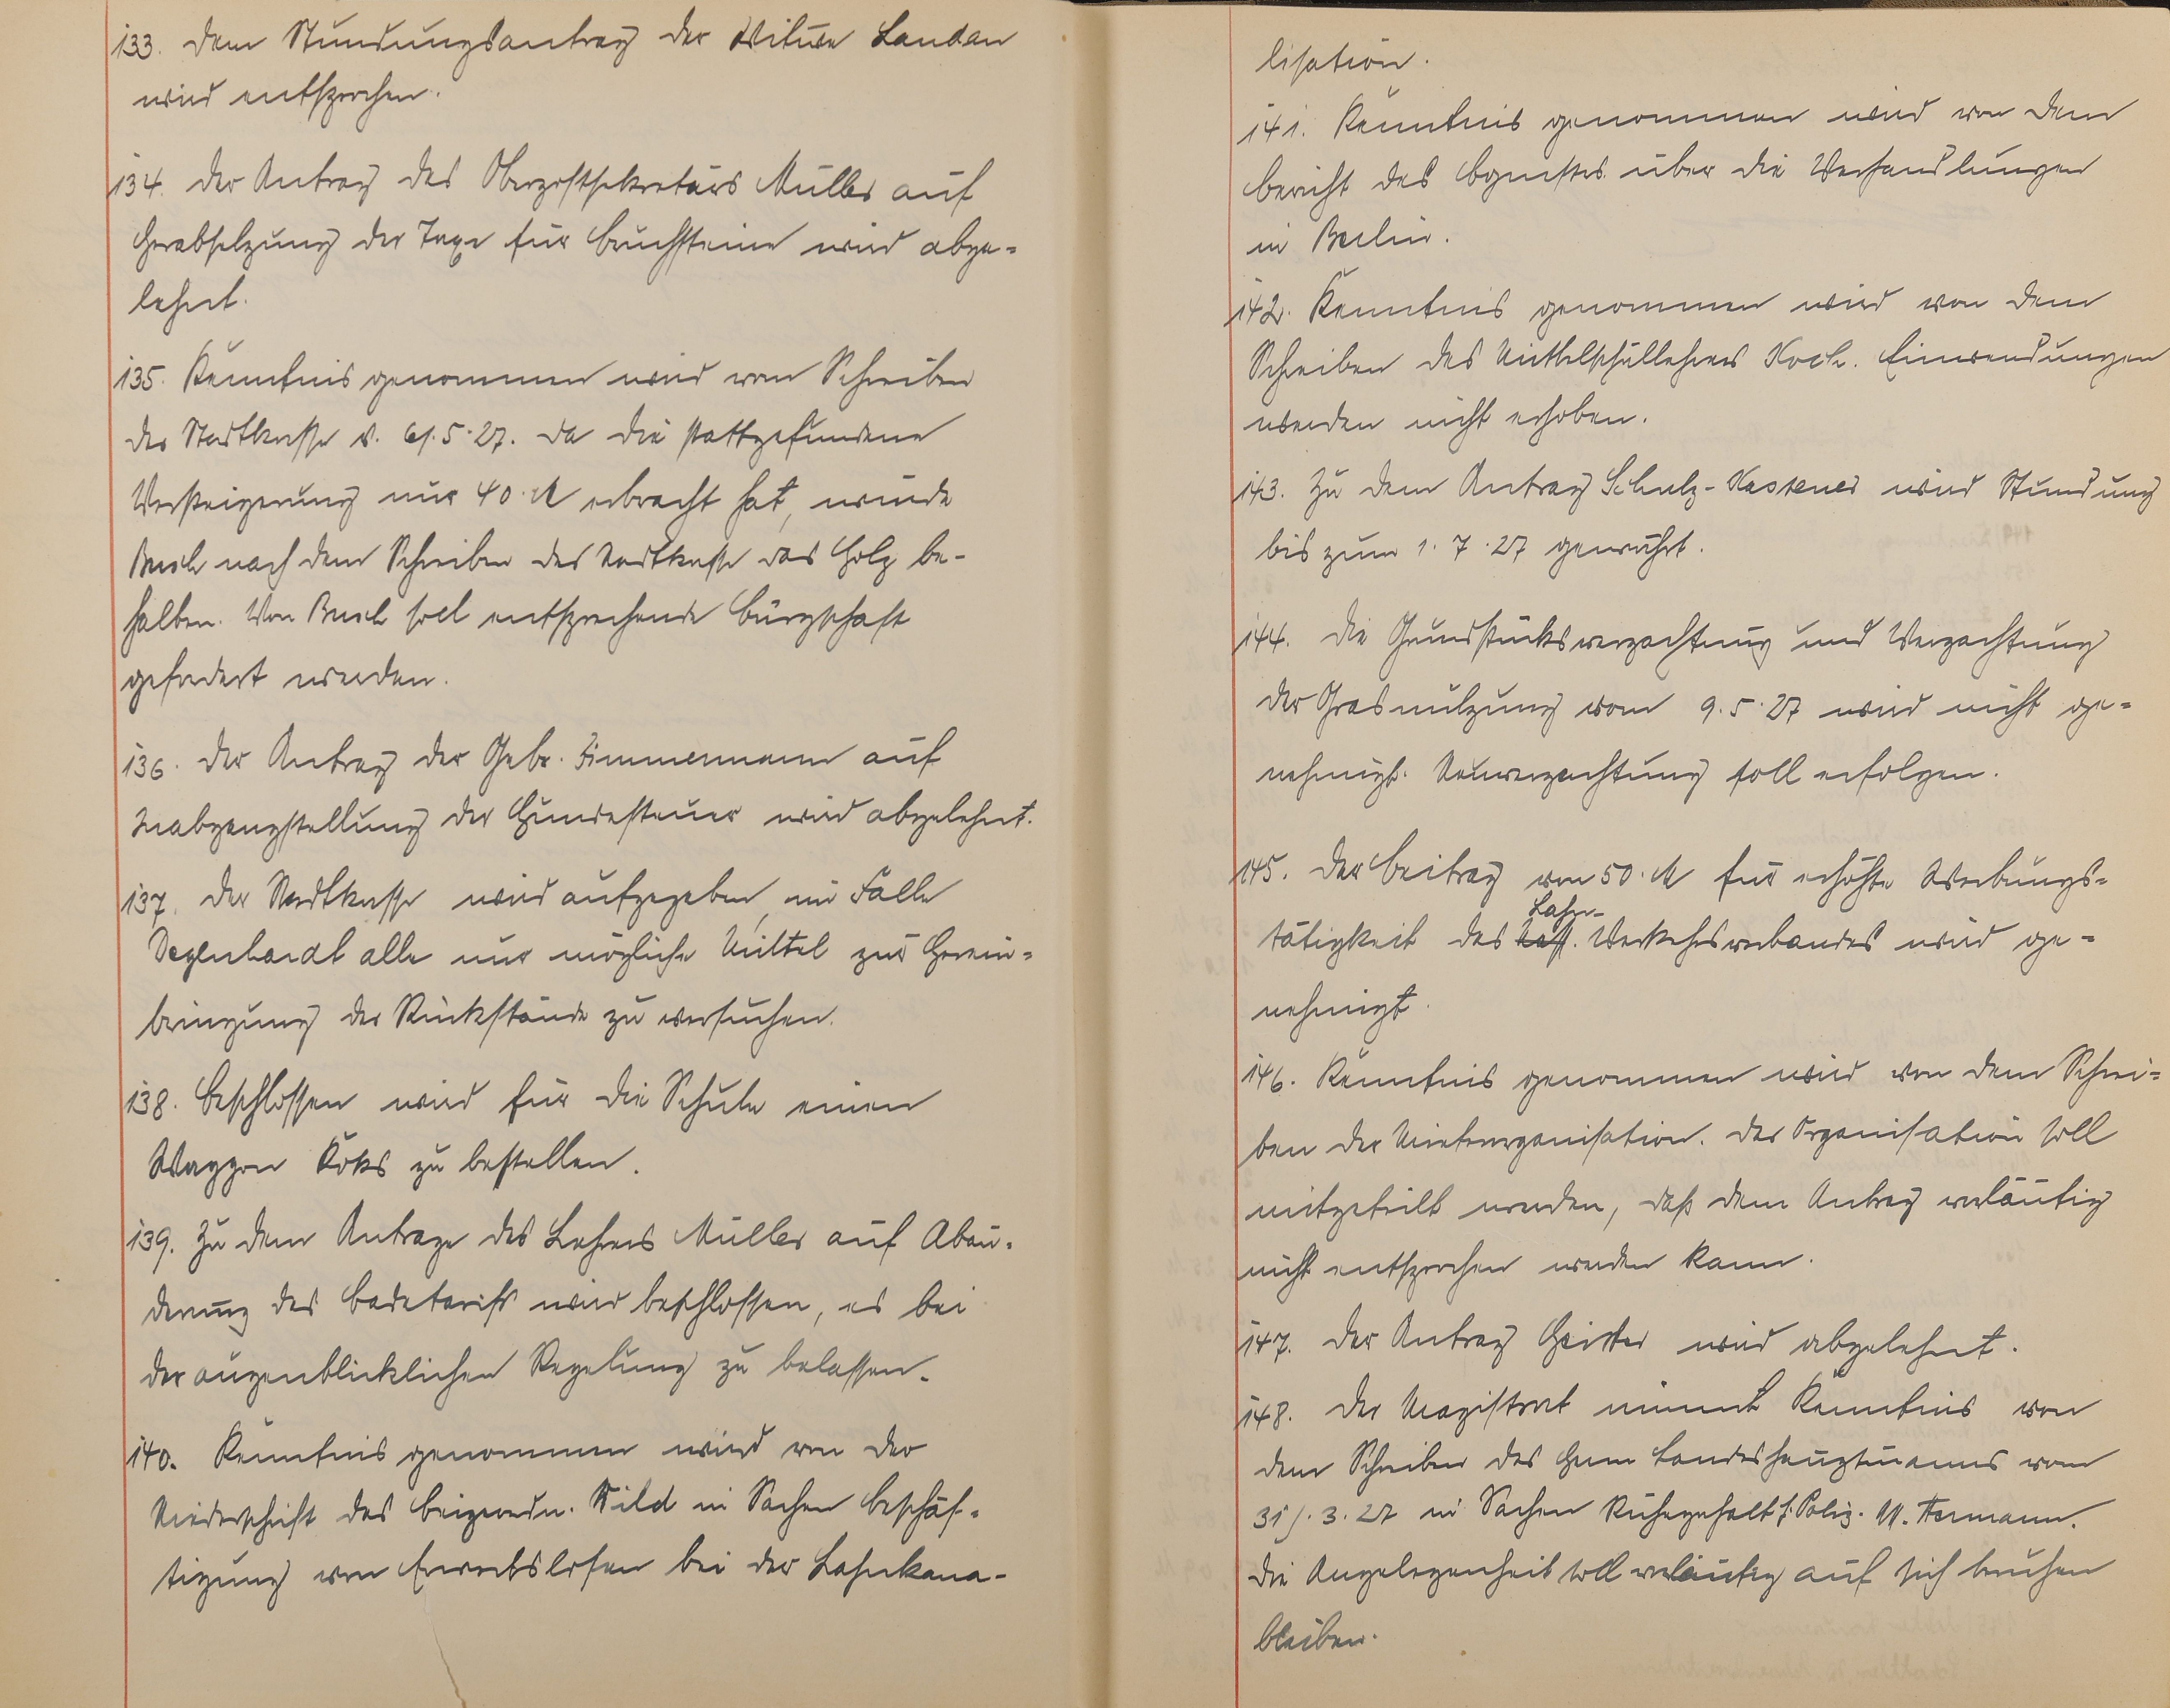 133. Dem Stundungsantrag der Witwe Landau
wird entsprochen.
134. Der Antrag des Oberpostsekretärs Müller auf
Herabsetzung der Taxe für Bruchsteine wird abge-
lehnt.
135. Kenntnis genommen wird vom Schreiben
der Stadtkasse v. 6/.5.27. Da die stattgefundene
Versteigerung nur 40 M erbracht hat, würde
Busch nach dem Schreiben der Stadtkasse das Holz be-
halten. Von Busch soll entsprechende Bürgschaft
gefordert werden.
136. Der Antrag der Gebr. Zimmermann auf
Inabgangstellung der Hundesteuer wird abgelehnt.
137. Der Stadtkasse wird aufgegeben, im Falle
Degenhardt alle nur mögliche Mittel zur Herein-
bringung der Rückstände zu versuchen.
138. Beschlossen wird für die Schule einen
Waggon Koks zu bestellen.
139. Zu dem Antrage des Lehrers Müller auf Abän-
derung des Badetarifs wird beschlossen, es bei
der augenblicklichen Regelung zu belassen.
140. Kenntnis genommen wird von der
Niederschrift des Beigeordn. Wild in Sachen Beschäf-
tigung von Erwerbslosen bei der Lahnkana-
lisation.
141. Kenntnis genommen wird von dem
Bericht des Bgmstrs. über die Verhandlungen
in Berlin.
142. Kenntnis genommen wird von dem
Schreiben des Mittelschullehrers Koch. Einwendungen
werden nicht erhoben.
143. Zu dem Antrag Schulz-Kastener wird Stundung
bis zum 1.7.27 gewährt.
144. Die Grundstücksverpachtung und Verpachtung
der Grasnutzung vom 9.5.27 wird nicht ge-
nehmigt. Neuverpachtung soll erfolgen.
145. Der Beitrag von 50 M für erhöhte Werbungs-
tätigkeit des Lahn-Verkehrsverbandes wird ge-
nehmigt.
146. Kenntnis genommen wird von dem Schrei-
ben der Mieterorganisation. Der Organisation soll
mitgeteilt werden, daß dem Antrag vorläufig
nicht entsprochen werden kann.
147. Der Antrag wird abgelehnt.
148. Der Magistrat nimmt Kenntnis von
dem Schreiben des Herrn Landeshauptmanns vom
31/.3.27 in Sachen Ruhegehalt f. Poliz. W. Hermann.
Die Angelegenheit soll vorläufig auf sich beruhen
bleiben.